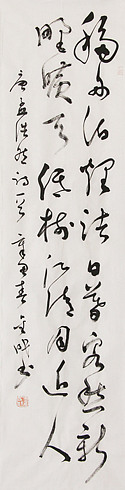 移舟泊烟渚日暮客愁新
野旷天低树江清月近人
唐孟浩然诗一首